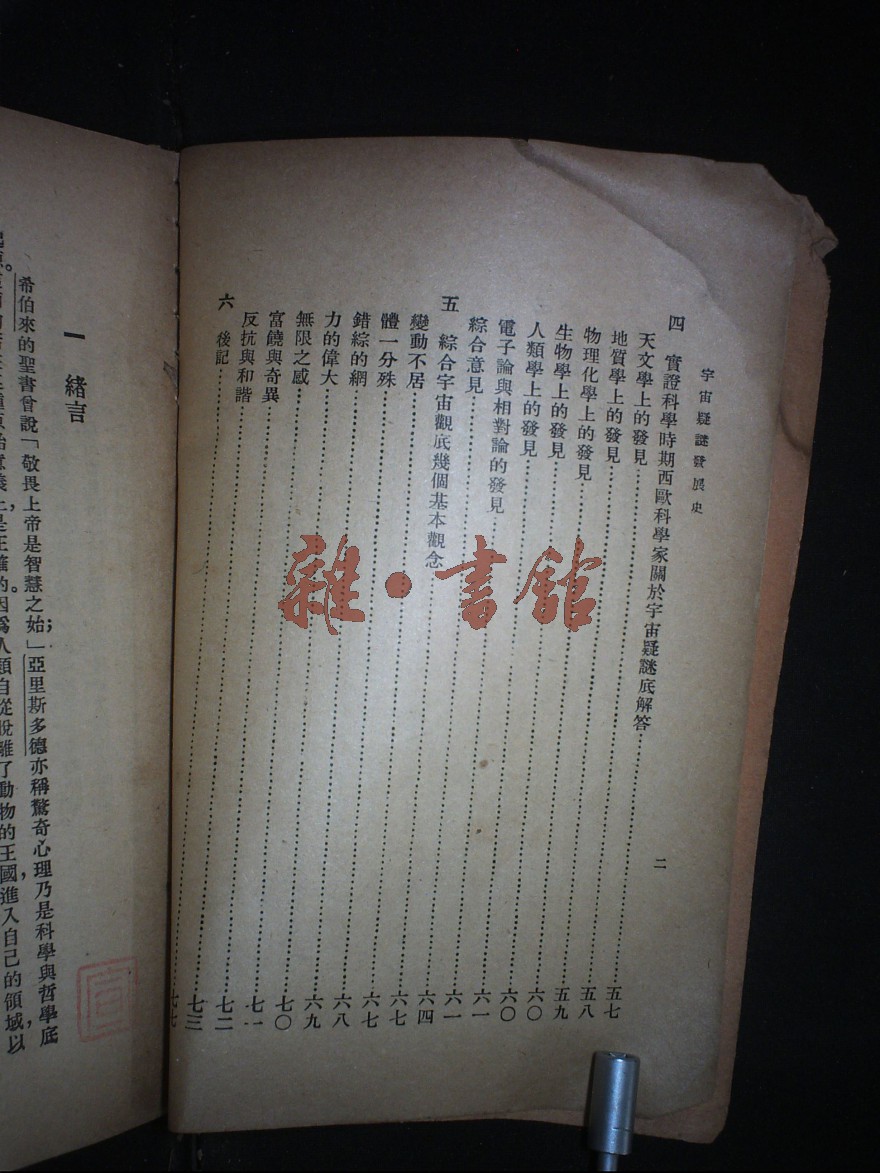 宇宙疑謎發展史
二
四 實證科學時期西歐科學家關於宇宙疑謎底解答……五七
天文學上的發見……五八
地質學上的發見……五九
物理化學上的發見……六〇
生物學上的發見……六〇
人類學上的發見……六一
電子論與相對論的發見……六一
綜合意見……六四
五 綜合宇宙觀底幾個基本觀念……六七
變動不居……六七
體一分殊……六八
錯綜的網……六九
力的偉大……七〇
無限之感……七一
富饒與奇異……七二
反抗與和諧……七三
六 後記……七七
一 緒言
希伯來的聖書曾說「敬畏上帝是智慧之始」；亞里斯多德亦稱驚奇心理乃是科學與哲學底
上是正確的。因爲人類自從脫離了動物的王國，進入自己的領域以
雜·書館